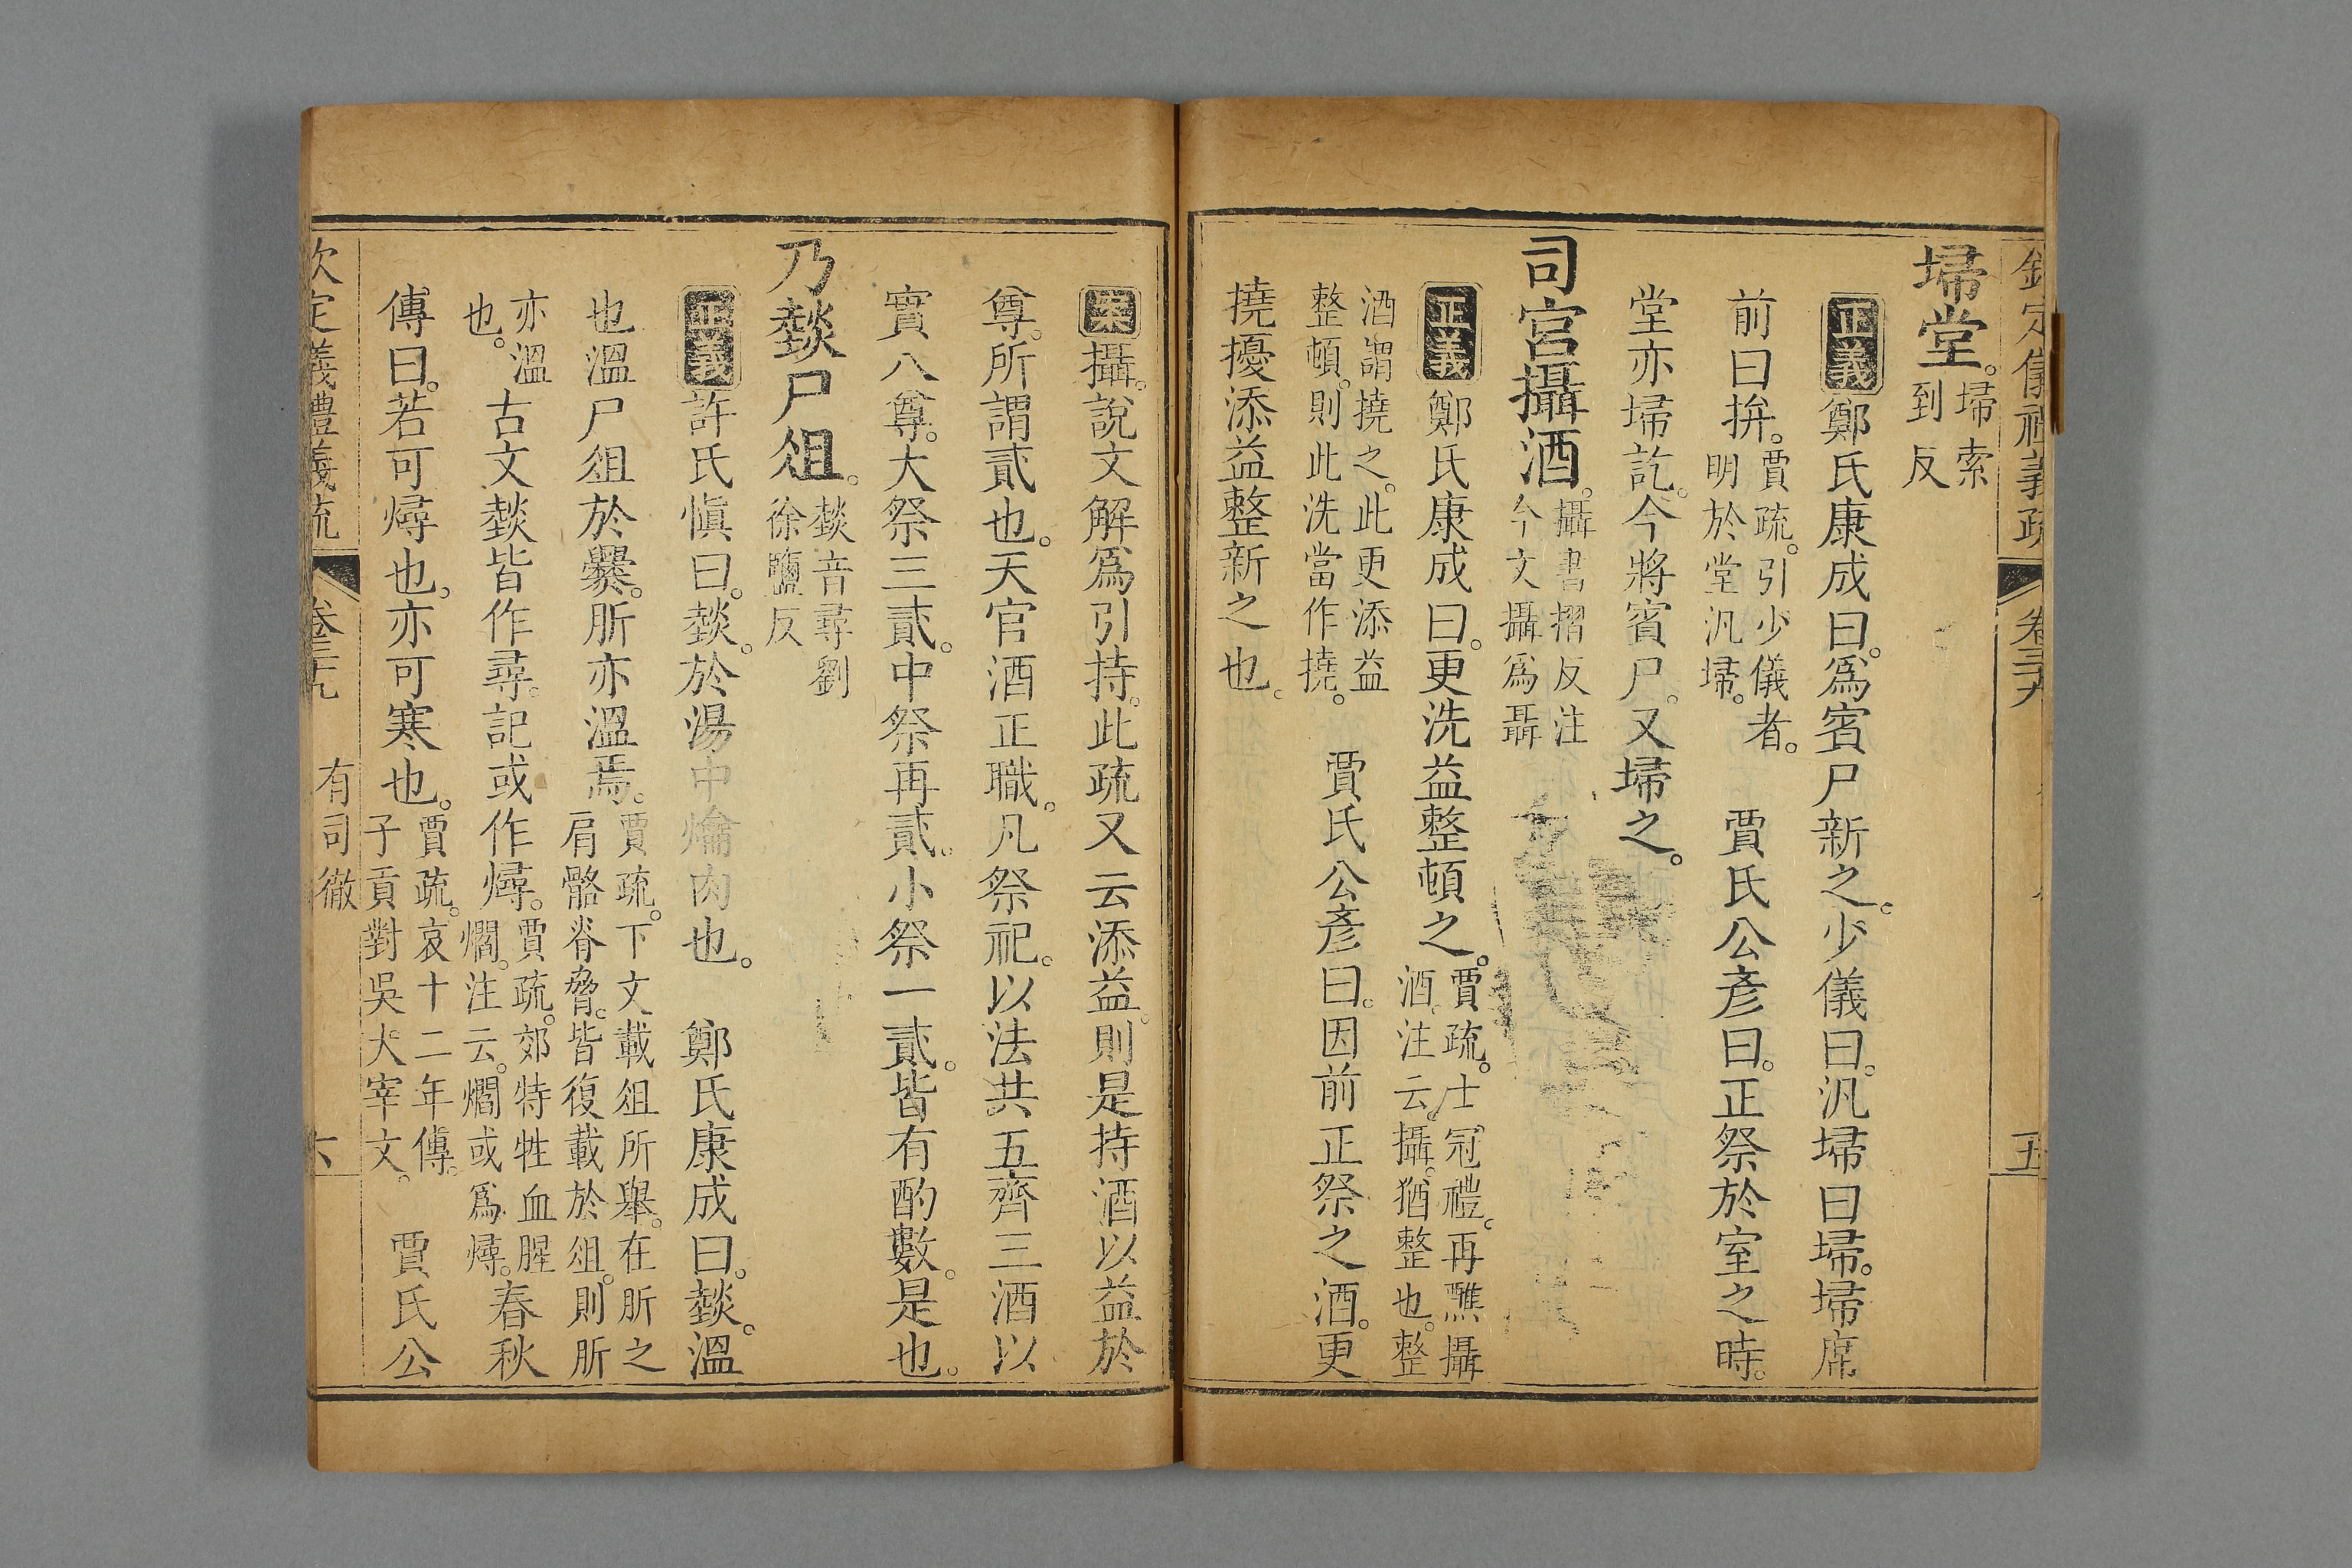 欽定儀禮義疏 卷三十九 五
埽堂。埽索到反
正義鄭氏康成曰。爲賓尸新之。少儀曰。汎埽曰埽。埽席
前曰拚。賈疏。引少儀者。明於堂汎埽。 賈氏公彥曰。正祭於室之時。
堂亦埽訖。今將賓尸。又埽之。
司宮攝酒。攝書摺反注今文攝爲聶
正義鄭氏康成曰。更洗益整頓之。賈疏。士冠禮。再醮攝酒。注云。攝。猶整也。整
酒謂撓之。此更添益整頓。則此洗當作撓。 賈氏公彥曰。因前正祭之酒。更
撓擾添益整新之也。
案攝。說文解爲引持。此疏又云添益。則是持酒以益於
尊。所謂貳也。天官酒正職。凡祭祀。以法共五齊三酒以
實八尊。大祭三貳。中祭再貳。小祭一貳。皆有酌數。是也。
乃燅尸俎。燅音尋劉徐鹽反
正義許氏愼曰。燅。於湯中爚肉也。 鄭氏康成曰。燅。溫
也溫尸俎於爨。肵亦溫焉。賈疏。下文載俎所舉。在肵之肩骼脊脅。皆復載於俎。則肵
亦溫也。古文燅皆作尋。記或作燖。賈疏。郊特牲血腥爓。注云。爓或爲燖。春秋
傳曰。若可燖也。亦可寒也。賈疏。哀十二年傳。子貢對吳大宰文。 賈氏公
欽定儀禮義疏 卷三十九 有司徹 六